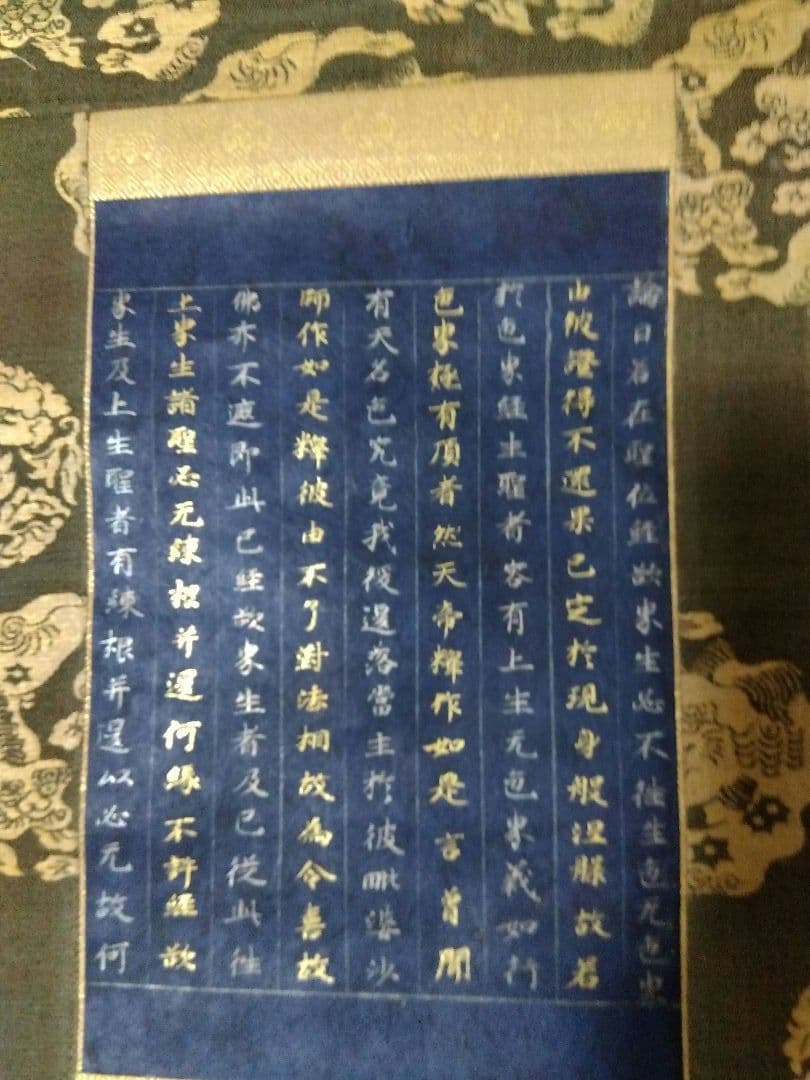 論曰若在聖位經欲界生必不往生色无色界
由彼證得不還果已定於現身般涅槃故若
於色界經生聖者容有上生无色界義如行
色界極有頂者然天帝釋作如是言曾聞
有天名色究竟我後退落當生於彼毗婆沙
師作如是釋彼由不了對法相故為令喜故
佛亦不遮即此已經欲界生者及已從此往
上界生諸聖必无練根并退何緣不許經欲
界生及上生聖者有練根并退以必无故何